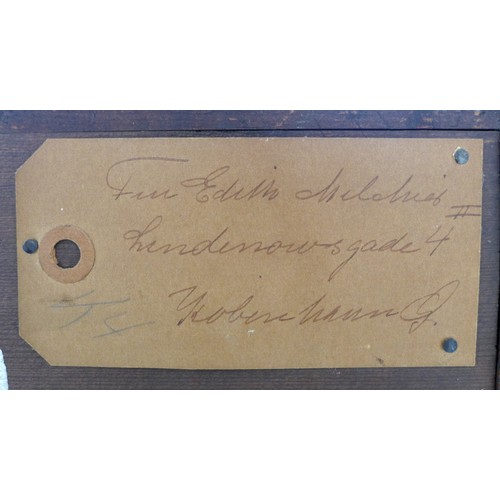 Fru Edith Melchior
Lindenowsgade 4 II
København Ø.